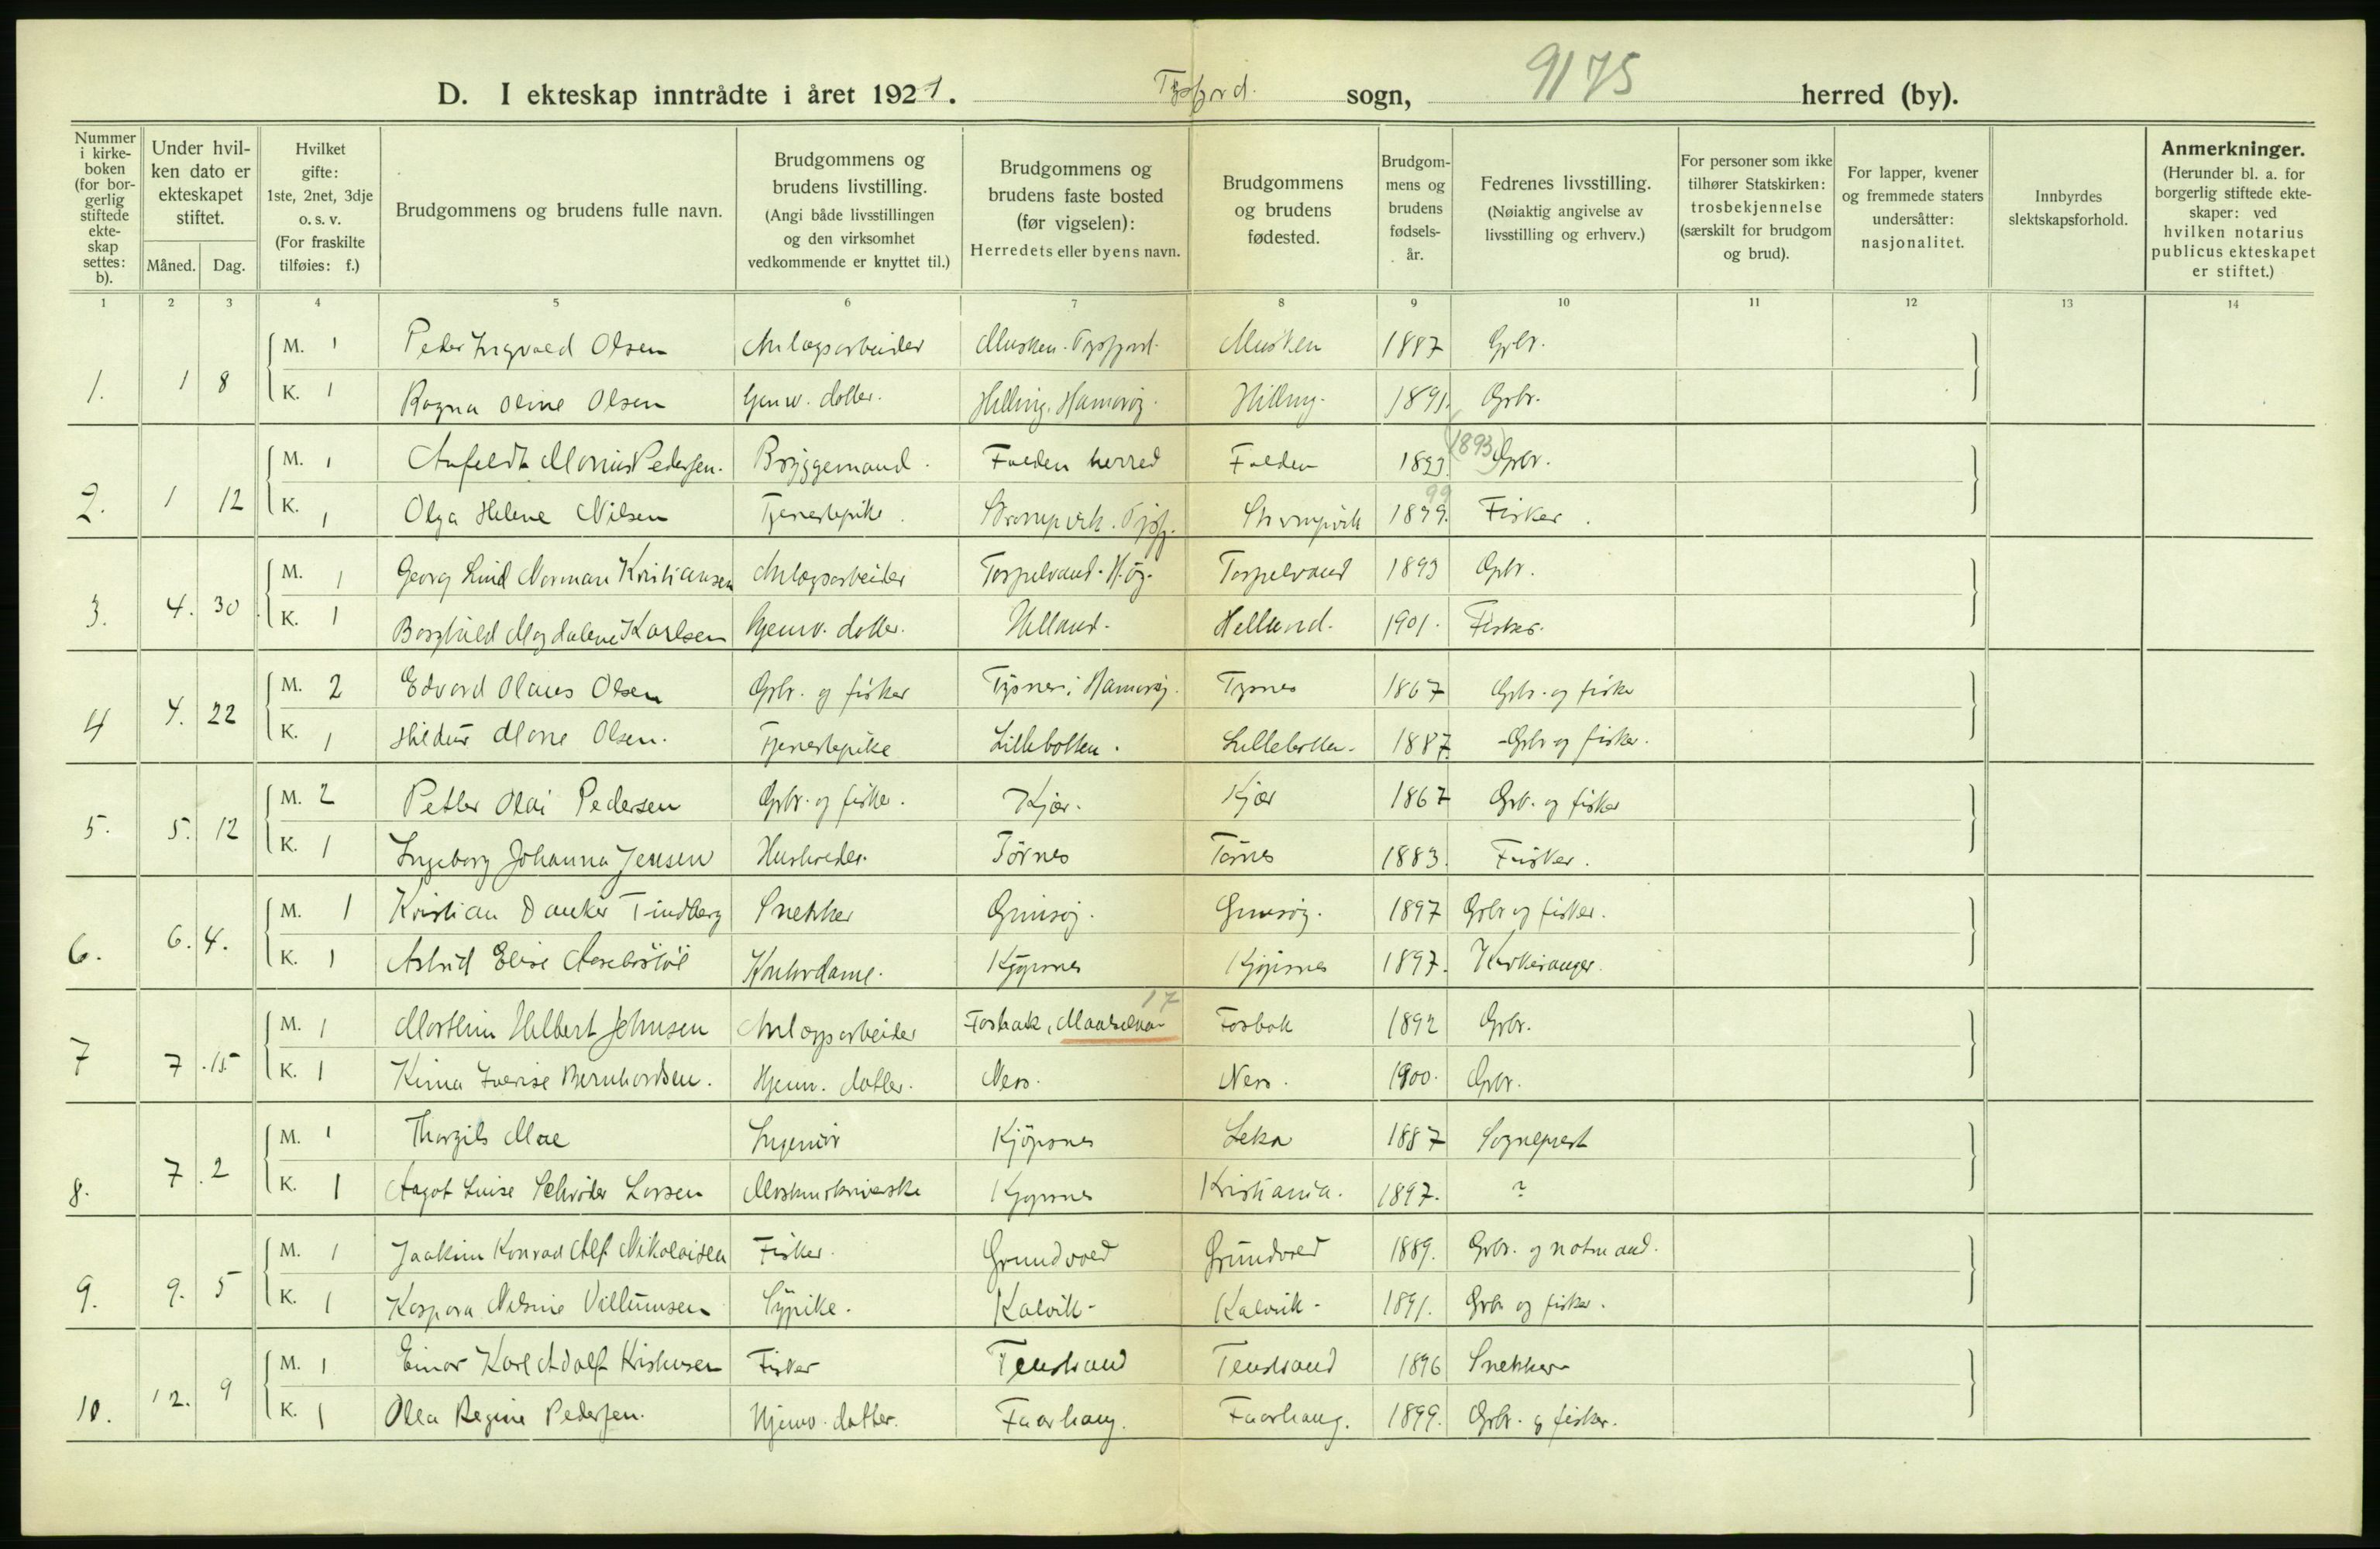 D. I ekteskap inntrådte i året 1921. Tysfjord. sogn, 9175 herred (by).
Nummer i kirke-boken (for bor-gerlig stiftede ekte-skap settes: b).
Under hvil-ken dato er ekteskapet stiftet.
Måned. Dag.
Hvilket gifte: 1ste, 2net, 3dje o. s. v. (For fraskilte tilføies: f.)
Brudgommens og brudens fulle navn.
Brudgommens og brudens livstilling. (Angi både livsstillingen og den virksomhet vedkommende er knyttet til.)
Brudgommens og brudens faste bosted (før vigselen): Herredets eller byens navn.
Brudgommens og brudens fødested.
Brudgom-mens og brudens fødsels-år.
Fedrenes livsstilling. (Nøiaktig angivelse av livsstilling og erhverv.)
For personer som ikke tilhører Statskirken: trosbekjennelse (særskilt for brudgom og brud).
For lapper, kvener og fremmede staters undersåtter: nasjonalitet.
Innbyrdes slektskapsforhold.
Anmerkninger. (Herunder bl. a. for borgerlig stiftede ekte-skaper: ved hvilken notarius publicus ekteskapet er stiftet.)
1 2 3 4 5 6 7 8 9 10 11 12 13 14
1. 1 8 M. 1 Peder Ingvald Olsen Anlægsarbeider Musken. Tysfjord. Musken 1887 Grbr.
K. 1 Ragna Oline Olsen hjemv. datter. Helling. Hamarøy. Helling. 1891. Grbr.
2. 1 12 M. 1 Anfeldt Marius Pedersen. Bryggemand. Folden herred Folden 1893. (1893) Grbr.
K. 1 Olga Helene Nilsen Tjenestepike. Strømpvik. Tysfj. Strømpvik 1899. 99 Fisker.
3. 4. 30 M. 1 Georg Lind Norman Kristiansen Anlægsarbeider Torpelvand. H.øy. Torpelvand 1893 Grbr.
K. 1 Borghild Magdalene Karlsen hjemv. datter. Helland. Helland. 1901. Fisker.
4 4. 22 M. 2 Edvard Olaus Olsen Grbr. og fisker Tysnes i Hamarøy. Tysnes 1867 Grbr. og fisker
K. 1 Hildur Marie Olsen. Tjenestepike Lillebotten. Lillebotten. 1887. Grbr og fisker.
5. 5. 12 M. 2 Petter Olai Pedersen Grbr. og fisker. Kjær. Kjær 1867 Grbr. og fisker
K. 1 Ingeborg Johanna Jensen Husholder. Tørnes Tørnes 1883. Fisker.
6. 6. 4. M. 1 Kristian Danker Tindberg Snekker Gimsøy. Gimsøy. 1897 Grbr og fisker.
K. 1 Astrid Elise Kontordame. Kjøpsnes Kjøpsnes 1897. Kirkesanger.
7 7. 15. M. 1 Marthin Hilbert Johnsen Anlægsarbeider Fosbak, Maalselven 17 Fosbak 1892 Grbr.
K. 1 Kina Lovise Bernhardsen. Hjemv. datter. Nes. Nes. 1900. Grbr.
8. 7. 2 M. 1 Thorgils Moe Ingeniør Kjøpsnes Leka 1887 Sogneprest
K. 1 Aagot Luise Schrøder Larsen Maskinskriverske Kjøpsnes Kristiania. 1897. ?
9. 9. 5 M. 1 Joakim Konrad Alf Nikolaisen Fisker. Grundvoed Grundvoed 1889. Grbr. og notmand.
K. 1 Kaspara Nilsine Villumsen Sypike. Kalvik. Kalvik. 1891. Grbr og fisker.
10. 12. 9 M. 1 Einar Karl Adolf Kristensen Fisker Tenstrand Tenstrand 1896 Snekker
K. 1 Olea Regine Pedersen. Hjemv. datter. Faarhaug. Faarhaug. 1899. Grbr. og fisker.